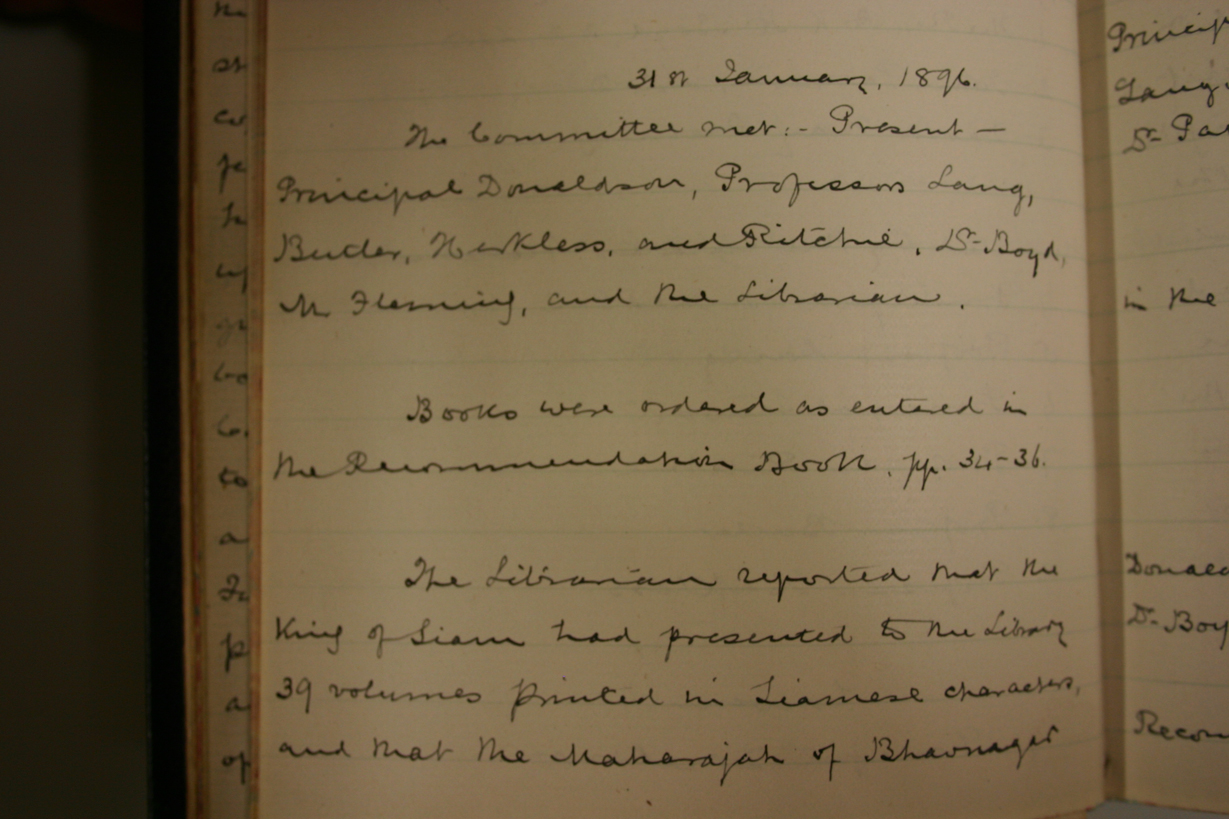 31st January, 1896.
The Committee met:- Present -
Principal Donaldson, Professors Lang,
Butler, Herkless, and Ritchie, Dr Boyd,
Mr Fleming, and the Librarian.
Books were ordered as entered in
the Recommendation Book, pp. 34-36.
The Librarian reported that the
King of Siam had presented to the Library
39 volumes printed in Siamese characters,
and that the Maharajah of Bhavnagar
Lang,
in the
Dr Boy